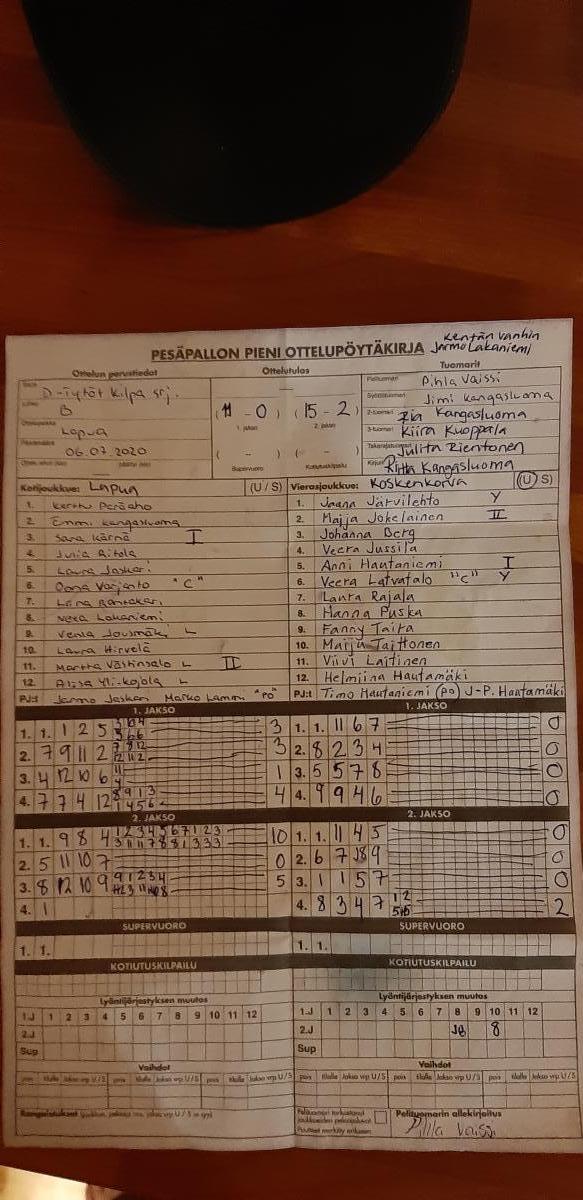 Kentän vanhin
Jarmo Lakaniemi
PESÄPALLON PIENI OTTELUPÖYTÄKIRJA
Ottelun perustiedot Ottelutulos Tuomarit
D-tytöt kilpa srj.
B
Lapua
06.07.2020
(11 - 0) (15 - 2)
1. jakso 2. jakso
( - ) ( - )
Supervuoro Kotiutuskilpailu
Pelituomari Pihla Vaissi
Syöttötuomari Jimi Kangasluoma
2-tuomari Ria Kangasluoma
3-tuomari Kiira Kuoppala
Takarajatuomari Julita Rientonen
Kirjuri Riitta Kangasluoma
Kotijoukkue: Lapua (U / S)
1. Kerttu Peräaho
2. Emmi Kangasluoma
3. Sara Kärnä I
4. Julia Ritola
5. Laura Jaskari
6. Oona Varjanto "C"
7. Liina Rantakari
8. Neea Lakaniemi
9. Venla Jousmäki L
10. Laura Hirvelä
11. Martta Västinsalo L II
12. Alisa Yli-Kojola L
PJ:t Jarmo Jaskari Marko Lammi "PO"
Vierasjoukkue: Koskenkorva (U / S)
1. Jaana Järvilehto Y
2. Maija Jokelainen II
3. Johanna Berg
4. Veera Jussila
5. Anni Hautaniemi I
6. Veera Latvatalo "C" Y
7. Laura Rajala
8. Hanna Puska
9. Fanny Taita
10. Maiju Taittonen
11. Viivi Laitinen
12. Helmiina Hautamäki
PJ:t Timo Hautaniemi (PO) J-P. Hautamäki
1. JAKSO
1. 1. 1 2 5 3
2. 7 9 11 2 3
3. 4 12 10 6 1
4. 7 7 4 12 4
1. JAKSO
1. 1. 11 6 7 0
2. 8 2 3 4 0
3. 5 5 7 8 0
4. 9 9 4 6 0
2. JAKSO
1. 1. 9 8 4 10
2. 5 11 10 7 0
3. 8 12 10 9 5
4. 1
2. JAKSO
1. 1. 11 4 5 0
2. 6 7 J8 9 0
3. 1 1 5 7 0
4. 8 3 4 7 2
SUPERVUORO
1. 1.
SUPERVUORO
1. 1.
KOTIUTUSKILPAILU
KOTIUTUSKILPAILU
Lyöntijärjestyksen muutos
1.J 1 2 3 4 5 6 7 8 9 10 11 12
2.J
Sup
Lyöntijärjestyksen muutos
1.J 1 2 3 4 5 6 7 8 9 10 11 12
2.J J8 8
Sup
Vaihdot
pois tilalle Jakso vrp U / S pois tilalle Jakso vrp U / S pois tilalle Jakso vrp U / S
Vaihdot
pois tilalle Jakso vrp U / S pois tilalle Jakso vrp U / S pois tilalle Jakso vrp U / S
Rangaistukset
Pelituomari tarkastanut
joukkueiden pelaajaluvat
Puutteet merkitty erikseen
Pelituomarin allekirjoitus
Pihla Vaissi